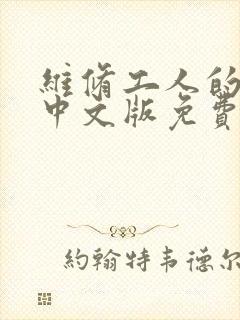 維脩工人的
中文版免費
約翰特韦德尔